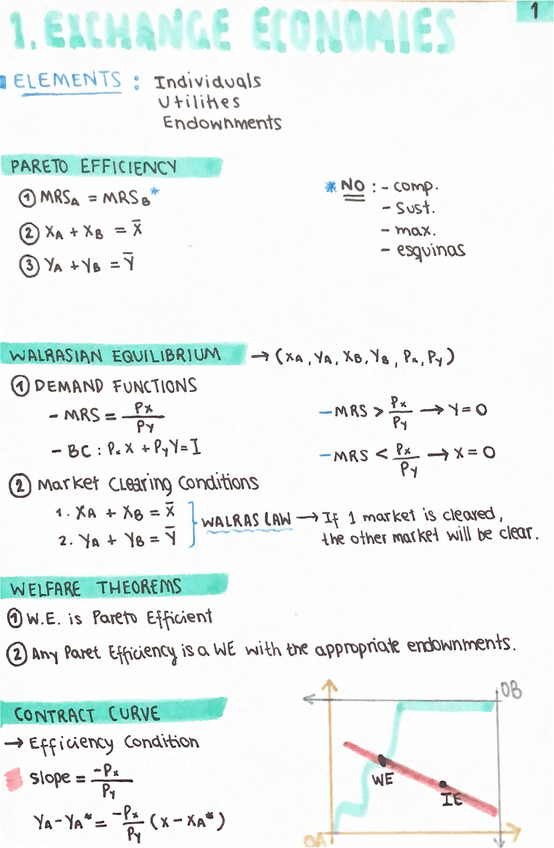 1
1. EXCHANGE ECONOMIES
ELEMENTS : Individuals
Utilities
Endownments
PARETO EFFICIENCY
① MRS_A = MRS_B*
② X_A + X_B = X̄
③ Y_A + Y_B = Ȳ
* NO : - comp.
- Sust.
- max.
- esquinas
WALRASIAN EQUILIBRIUM → (X_A, Y_A, X_B, Y_B, P_X, P_Y)
① DEMAND FUNCTIONS
- MRS = P_X / P_Y
- BC : P_X X + P_Y Y = I
- MRS > P_X / P_Y → Y = 0
- MRS < P_X / P_Y → X = 0
② Market Clearing Conditions
1. X_A + X_B = X̄
2. Y_A + Y_B = Ȳ
WALRAS LAW → If 1 market is cleared,
the other market will be clear.
WELFARE THEOREMS
① W.E. is Pareto Efficient
② Any Paret Efficiency is a WE with the appropriate endownments.
CONTRACT CURVE
→ Efficiency Condition
slope = -P_X / P_Y
Y_A - Y_A* = -P_X / P_Y (X - X_A*)
OB
WE
IE
OA